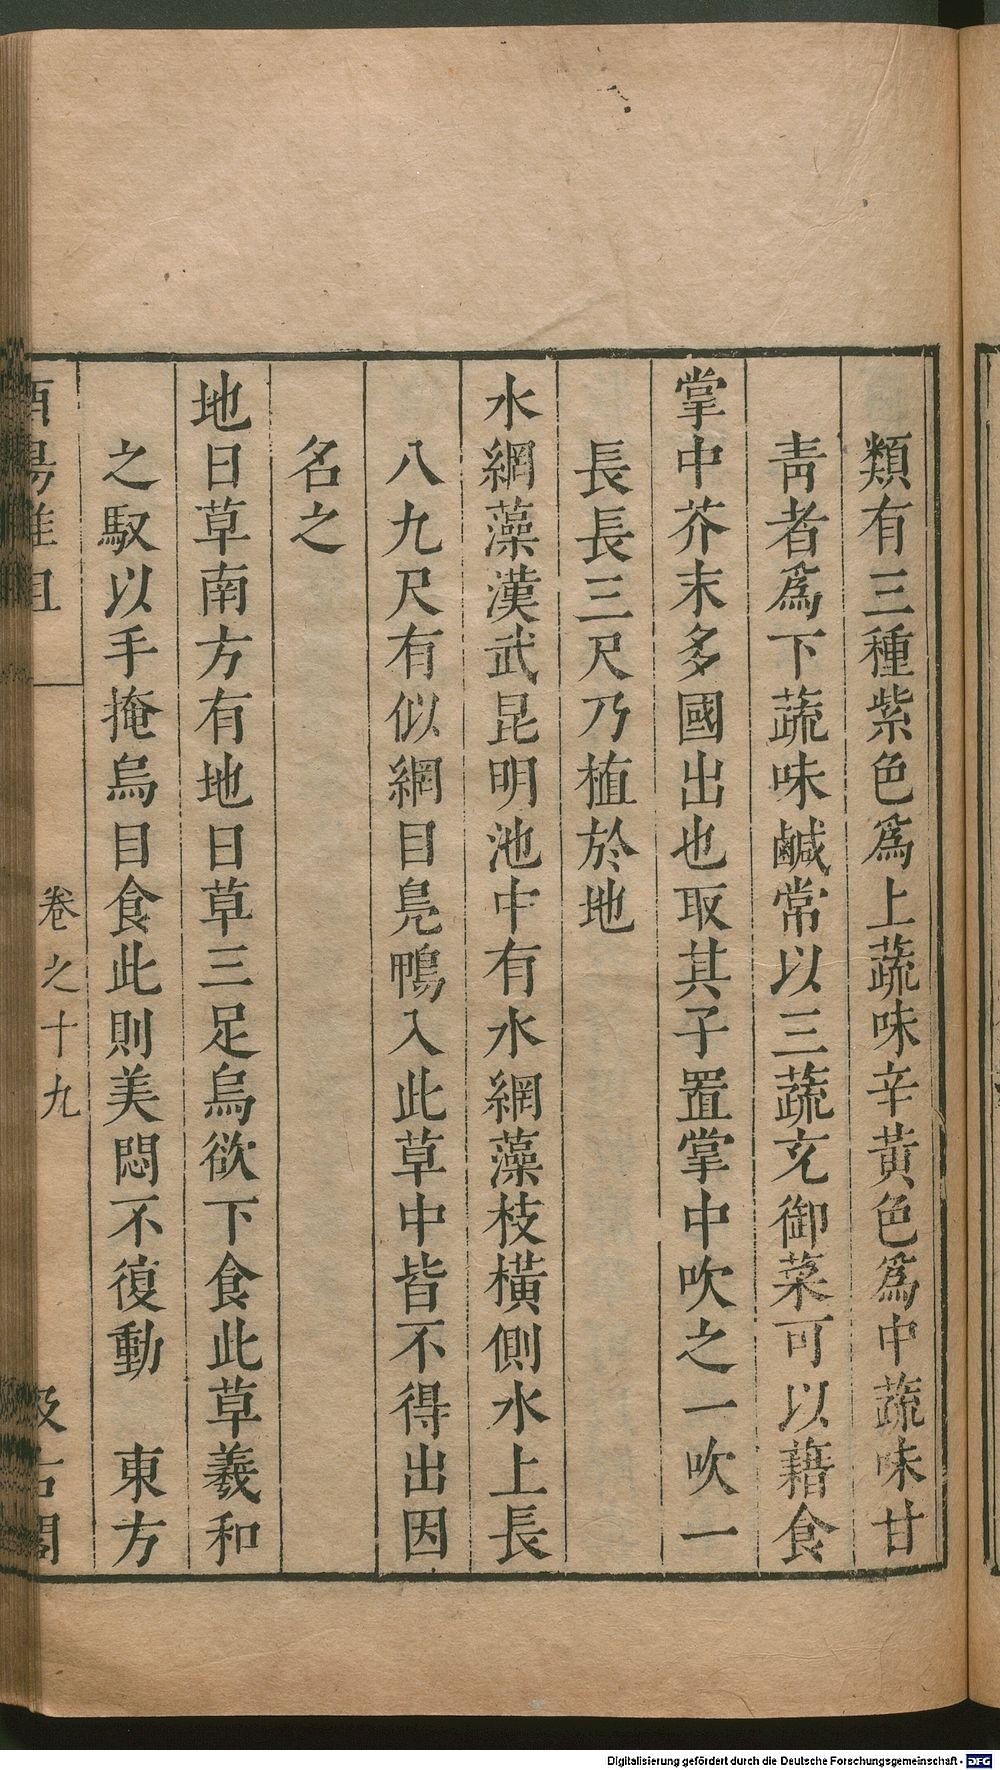 類有三種紫色爲上蔬味辛黃色爲中蔬味甘
靑者爲下蔬味鹹常以三蔬充御菜可以藉食
掌中芥末多國出也取其子置掌中吹之一吹一
長長三尺乃植於地
水網藻漢武昆明池中有水網藻枝橫側水上長
八九尺有似網目鳧鴨入此草中皆不得出因
名之
地日草南方有地日草三足烏欲下食此草羲和
之馭以手掩烏目食此則美悶不復動　東方
酉陽雜俎
卷之十九
汲古閣
Digitalisierung gefördert durch die Deutsche Forschungsgemeinschaft - DFG